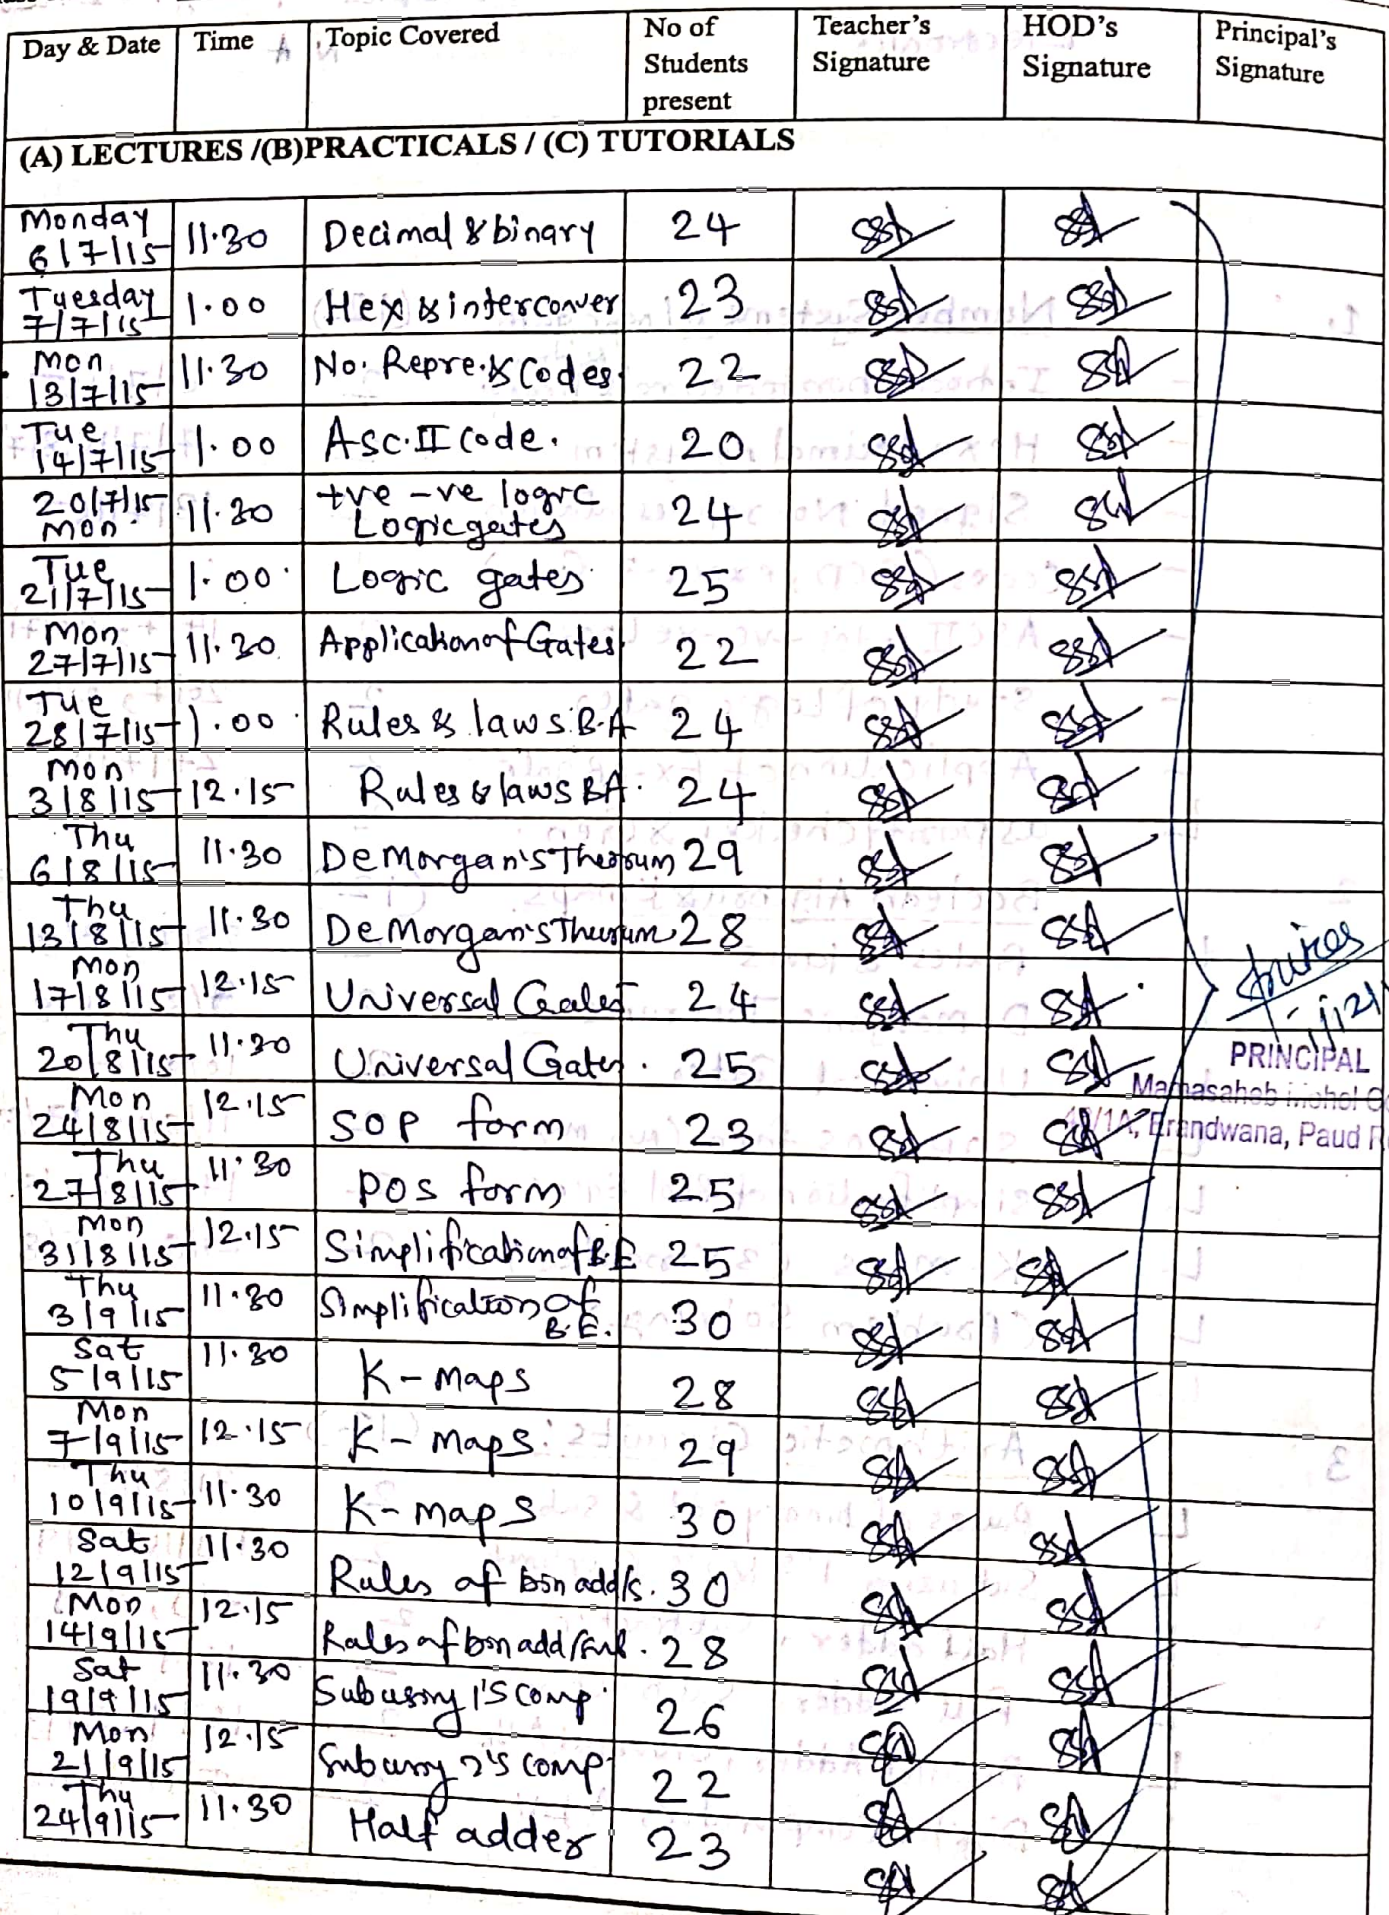 Day & Date Time Topic Covered No of Students present Teacher's Signature HOD's Signature Principal's Signature
(A) LECTURES /(B)PRACTICALS / (C) TUTORIALS
Monday 6/7/15 11.30 Decimal & binary 24
Tuesday 7/7/15 1.00 Hex & interconver 23
Mon 13/7/15 11.30 No. Repre. & Codes. 22
Tue 14/7/15 1.00 Asc.II code. 20
20/7/15 Mon. 11.30 +ve -ve logic Logic gates 24
Tue 21/7/15 1.00 Logic gates 25
Mon 27/7/15 11.30 Application of Gates 22
Tue 28/7/15 1.00 Rules & laws B.A 24
Mon 3/8/15 12.15 Rules & laws BA. 24
Thu 6/8/15 11.30 De Morgan's Theorum 29
Thu 13/8/15 11.30 De Morgan's Theorum 28
Mon 17/8/15 12.15 Universal Gates 24
Thu 20/8/15 11.30 Universal Gates. 25
PRINCIPAL
Mamasaheb Mohol Co
48/1A, Erandwana, Paud R
Mon 24/8/15 12.15 SOP form 23
Thu 27/8/15 11.30 POS form 25
Mon 31/8/15 12.15 Simplification of B.E 25
Thu 3/9/15 11.30 Simplification of B.E. 30
Sat 5/9/15 11.30 K-maps 28
Mon 7/9/15 12.15 K-maps. 29
Thu 10/9/15 11.30 K-maps 30
Sat 12/9/15 11.30 Rules of bin add/s. 30
Mon 14/9/15 12.15 Rules of bin add/sub. 28
Sat 19/9/15 11.30 Sub using 1's comp. 26
Mon 21/9/15 12.15 Sub using 2's comp. 22
Thu 24/9/15 11.30 Half adder 23